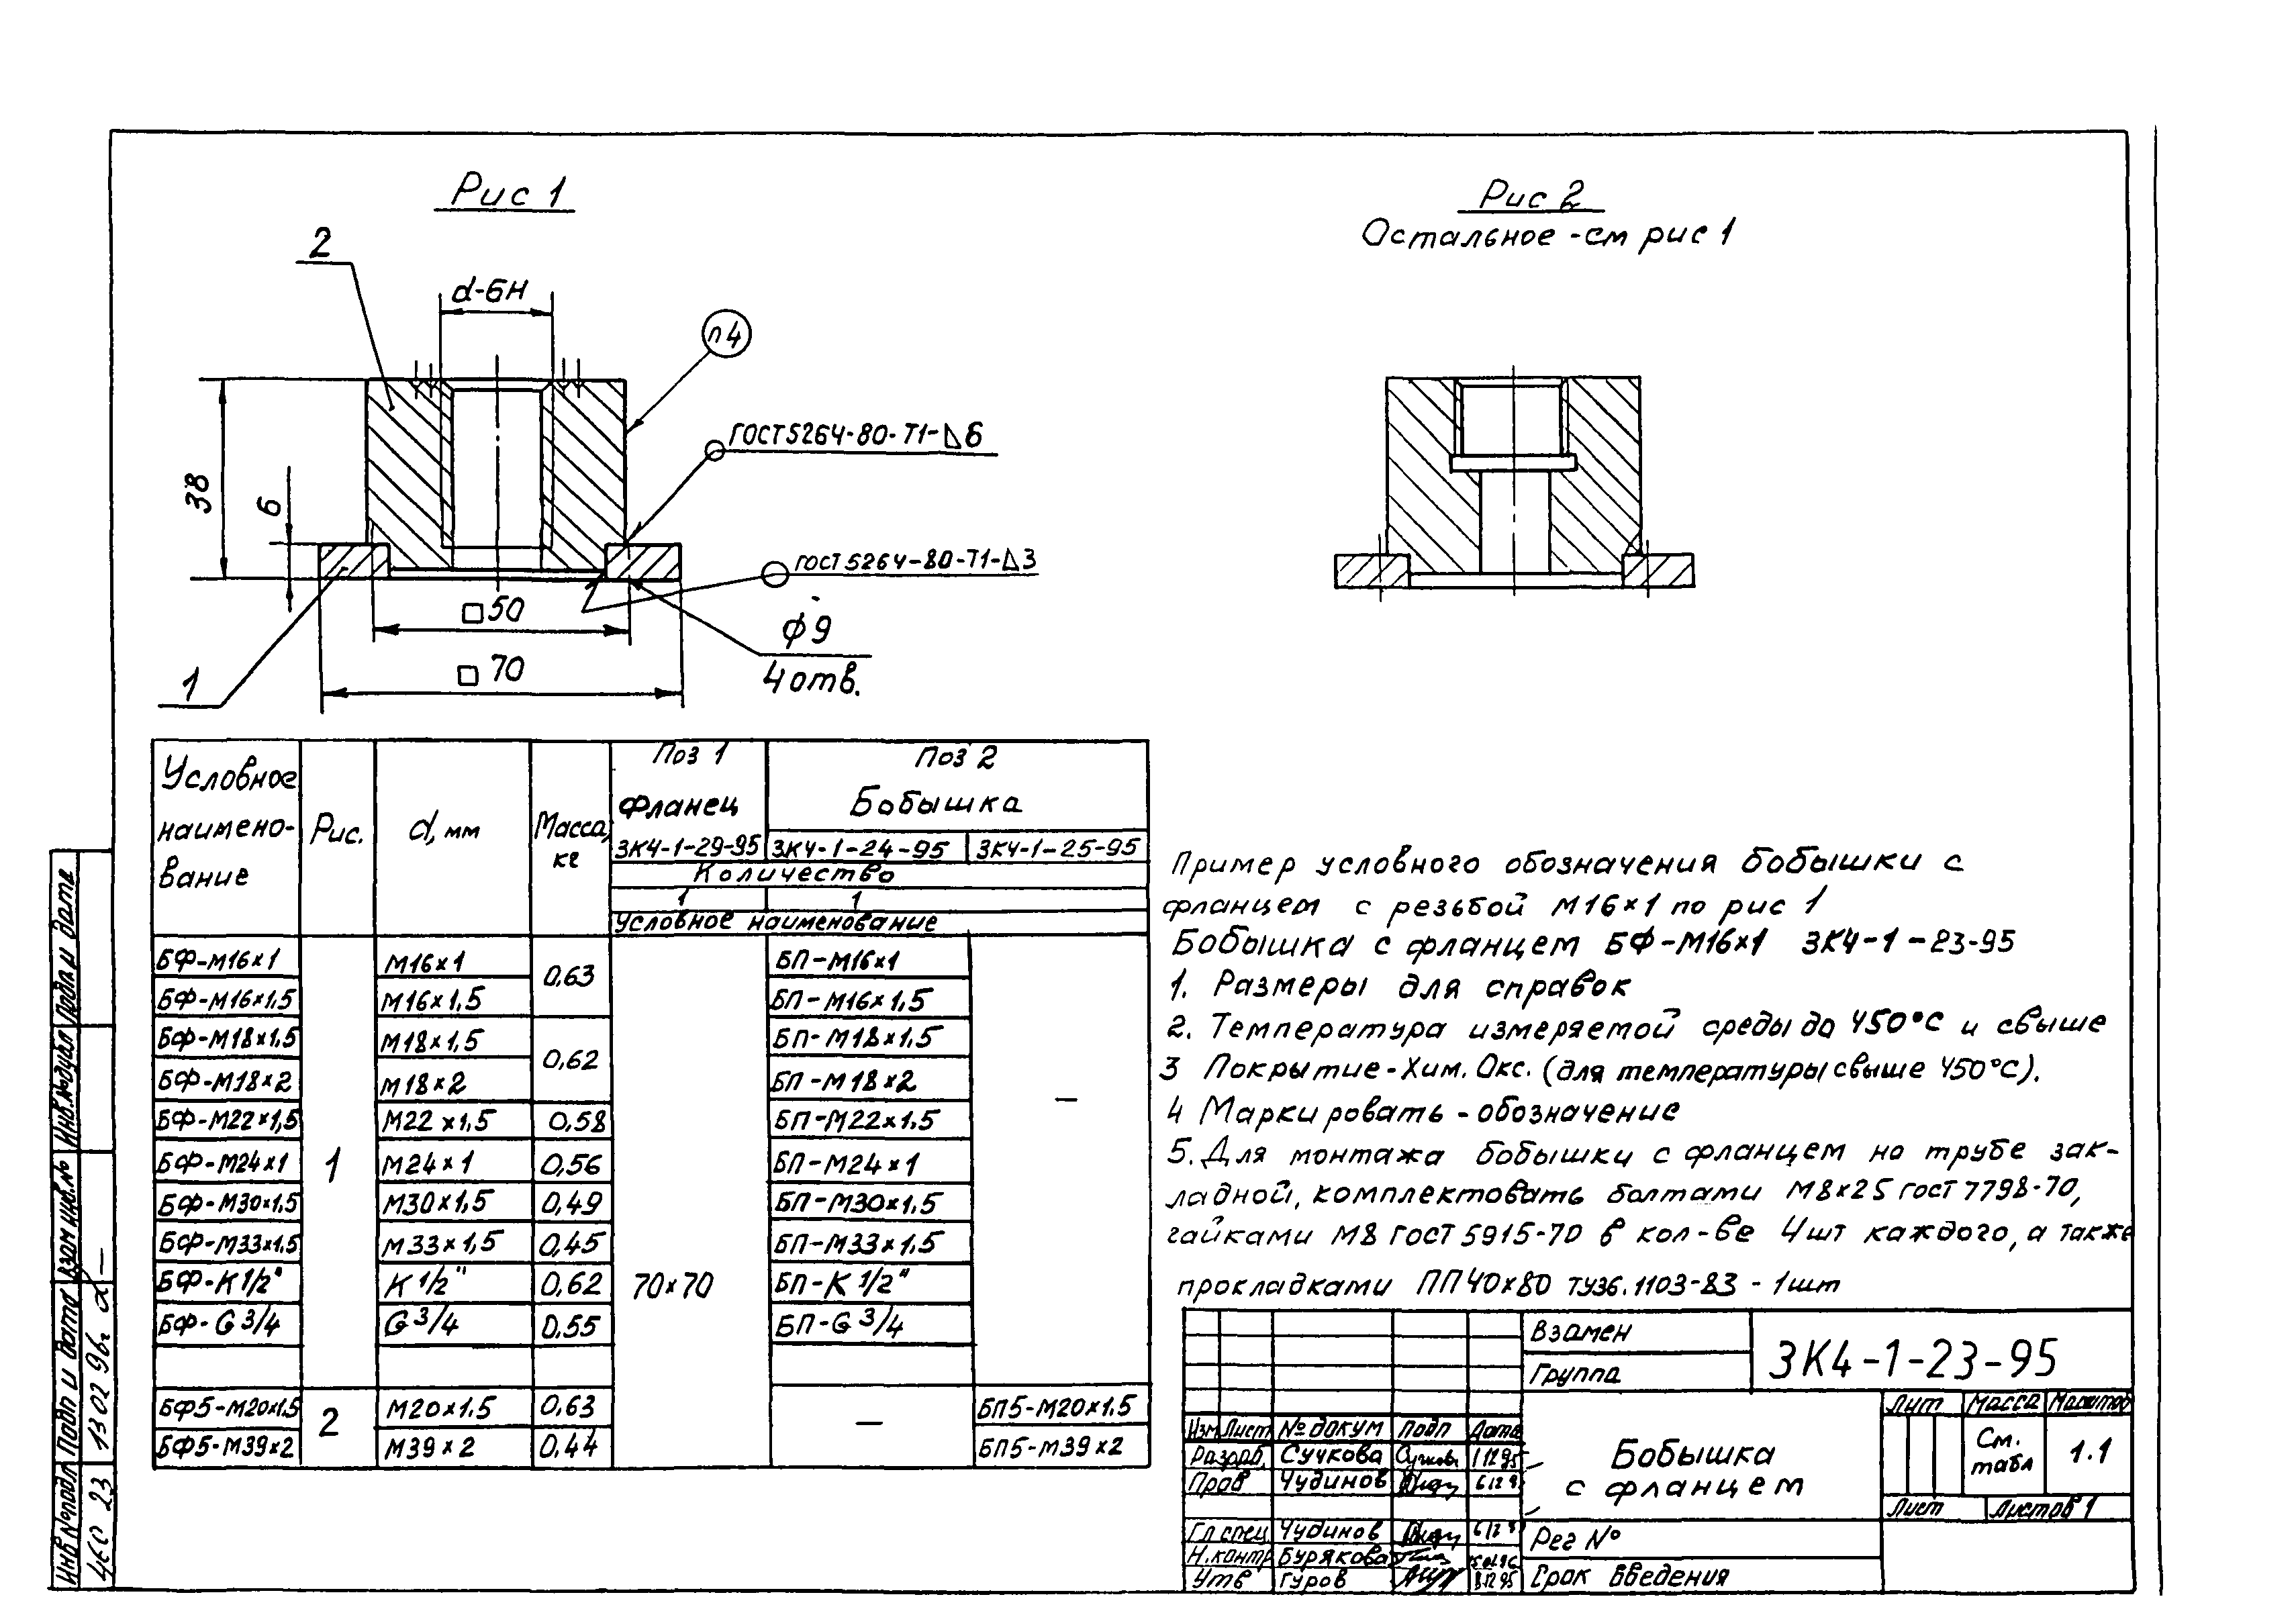 Рис 1
2
d-6H
п4
38
6
ГОСТ 5264-80-Т1-△6
ГОСТ 5264-80-Т1-△3
□50
□70
φ9
4 отв.
1
Рис 2
Остальное -см рис 1
Условное наимено-вание | Рис. | d, мм | Масса, кг | Поз 1 Фланец | Поз 2 Бобышка
ЗК4-1-29-95 | ЗК4-1-24-95 | ЗК4-1-25-95
Количество
1 | 1
Условное наименование
БФ-М16×1 | 1 | М16×1 | 0,63 | 70×70 | БП-М16×1 | —
БФ-М16×1,5 | М16×1,5 | БП-М16×1,5
БФ-М18×1,5 | М18×1,5 | 0,62 | БП-М18×1,5
БФ-М18×2 | М18×2 | БП-М18×2
БФ-М22×1,5 | М22×1,5 | 0,58 | БП-М22×1,5
БФ-М24×1 | М24×1 | 0,56 | БП-М24×1
БФ-М30×1,5 | М30×1,5 | 0,49 | БП-М30×1,5
БФ-М33×1,5 | М33×1,5 | 0,45 | БП-М33×1,5
БФ-К1/2" | К1/2" | 0,62 | БП-К1/2"
БФ-G3/4 | G3/4 | 0.55 | БП-G3/4
БФ5-М20×1,5 | 2 | М20×1.5 | 0,63 | — | БП5-М20×1.5
БФ5-М39×2 | М39×2 | 0,44 | БП5-М39×2
Пример условного обозначения бобышки с
фланцем с резьбой М16×1 по рис 1
Бобышка с фланцем БФ-М16×1 ЗК4-1-23-95
1. Размеры для справок
2. Температура измеряемой среды до 450°С и свыше
3 Покрытие-Хим. Окс. (для температуры свыше 450°С).
4 Маркировать - обозначение
5. Для монтажа бобышки с фланцем на трубе зак-
ладной, комплектовать болтами М8×25 ГОСТ 7798-70,
гайками М8 ГОСТ 5915-70 в кол-ве 4шт каждого, а также
прокладками ПП 40×80 ТУ36.1103-83 - 1шт
Взамен
Группа
ЗК4-1-23-95
Изм Лист № докум Подп Дата
Разраб. Сучкова
Пров Чудинов
Гл спец Чудинов
Н.контр Бурякова
Утв Гуров
Бобышка
с фланцем
Лит Масса Масштаб
См. табл
1.1
Лист Листов 1
Рег №
Срок введения
Инв № подл
Подп и дата
Взам инв. №
Инв. № дубл
Подп и дата
23
13 02 96г